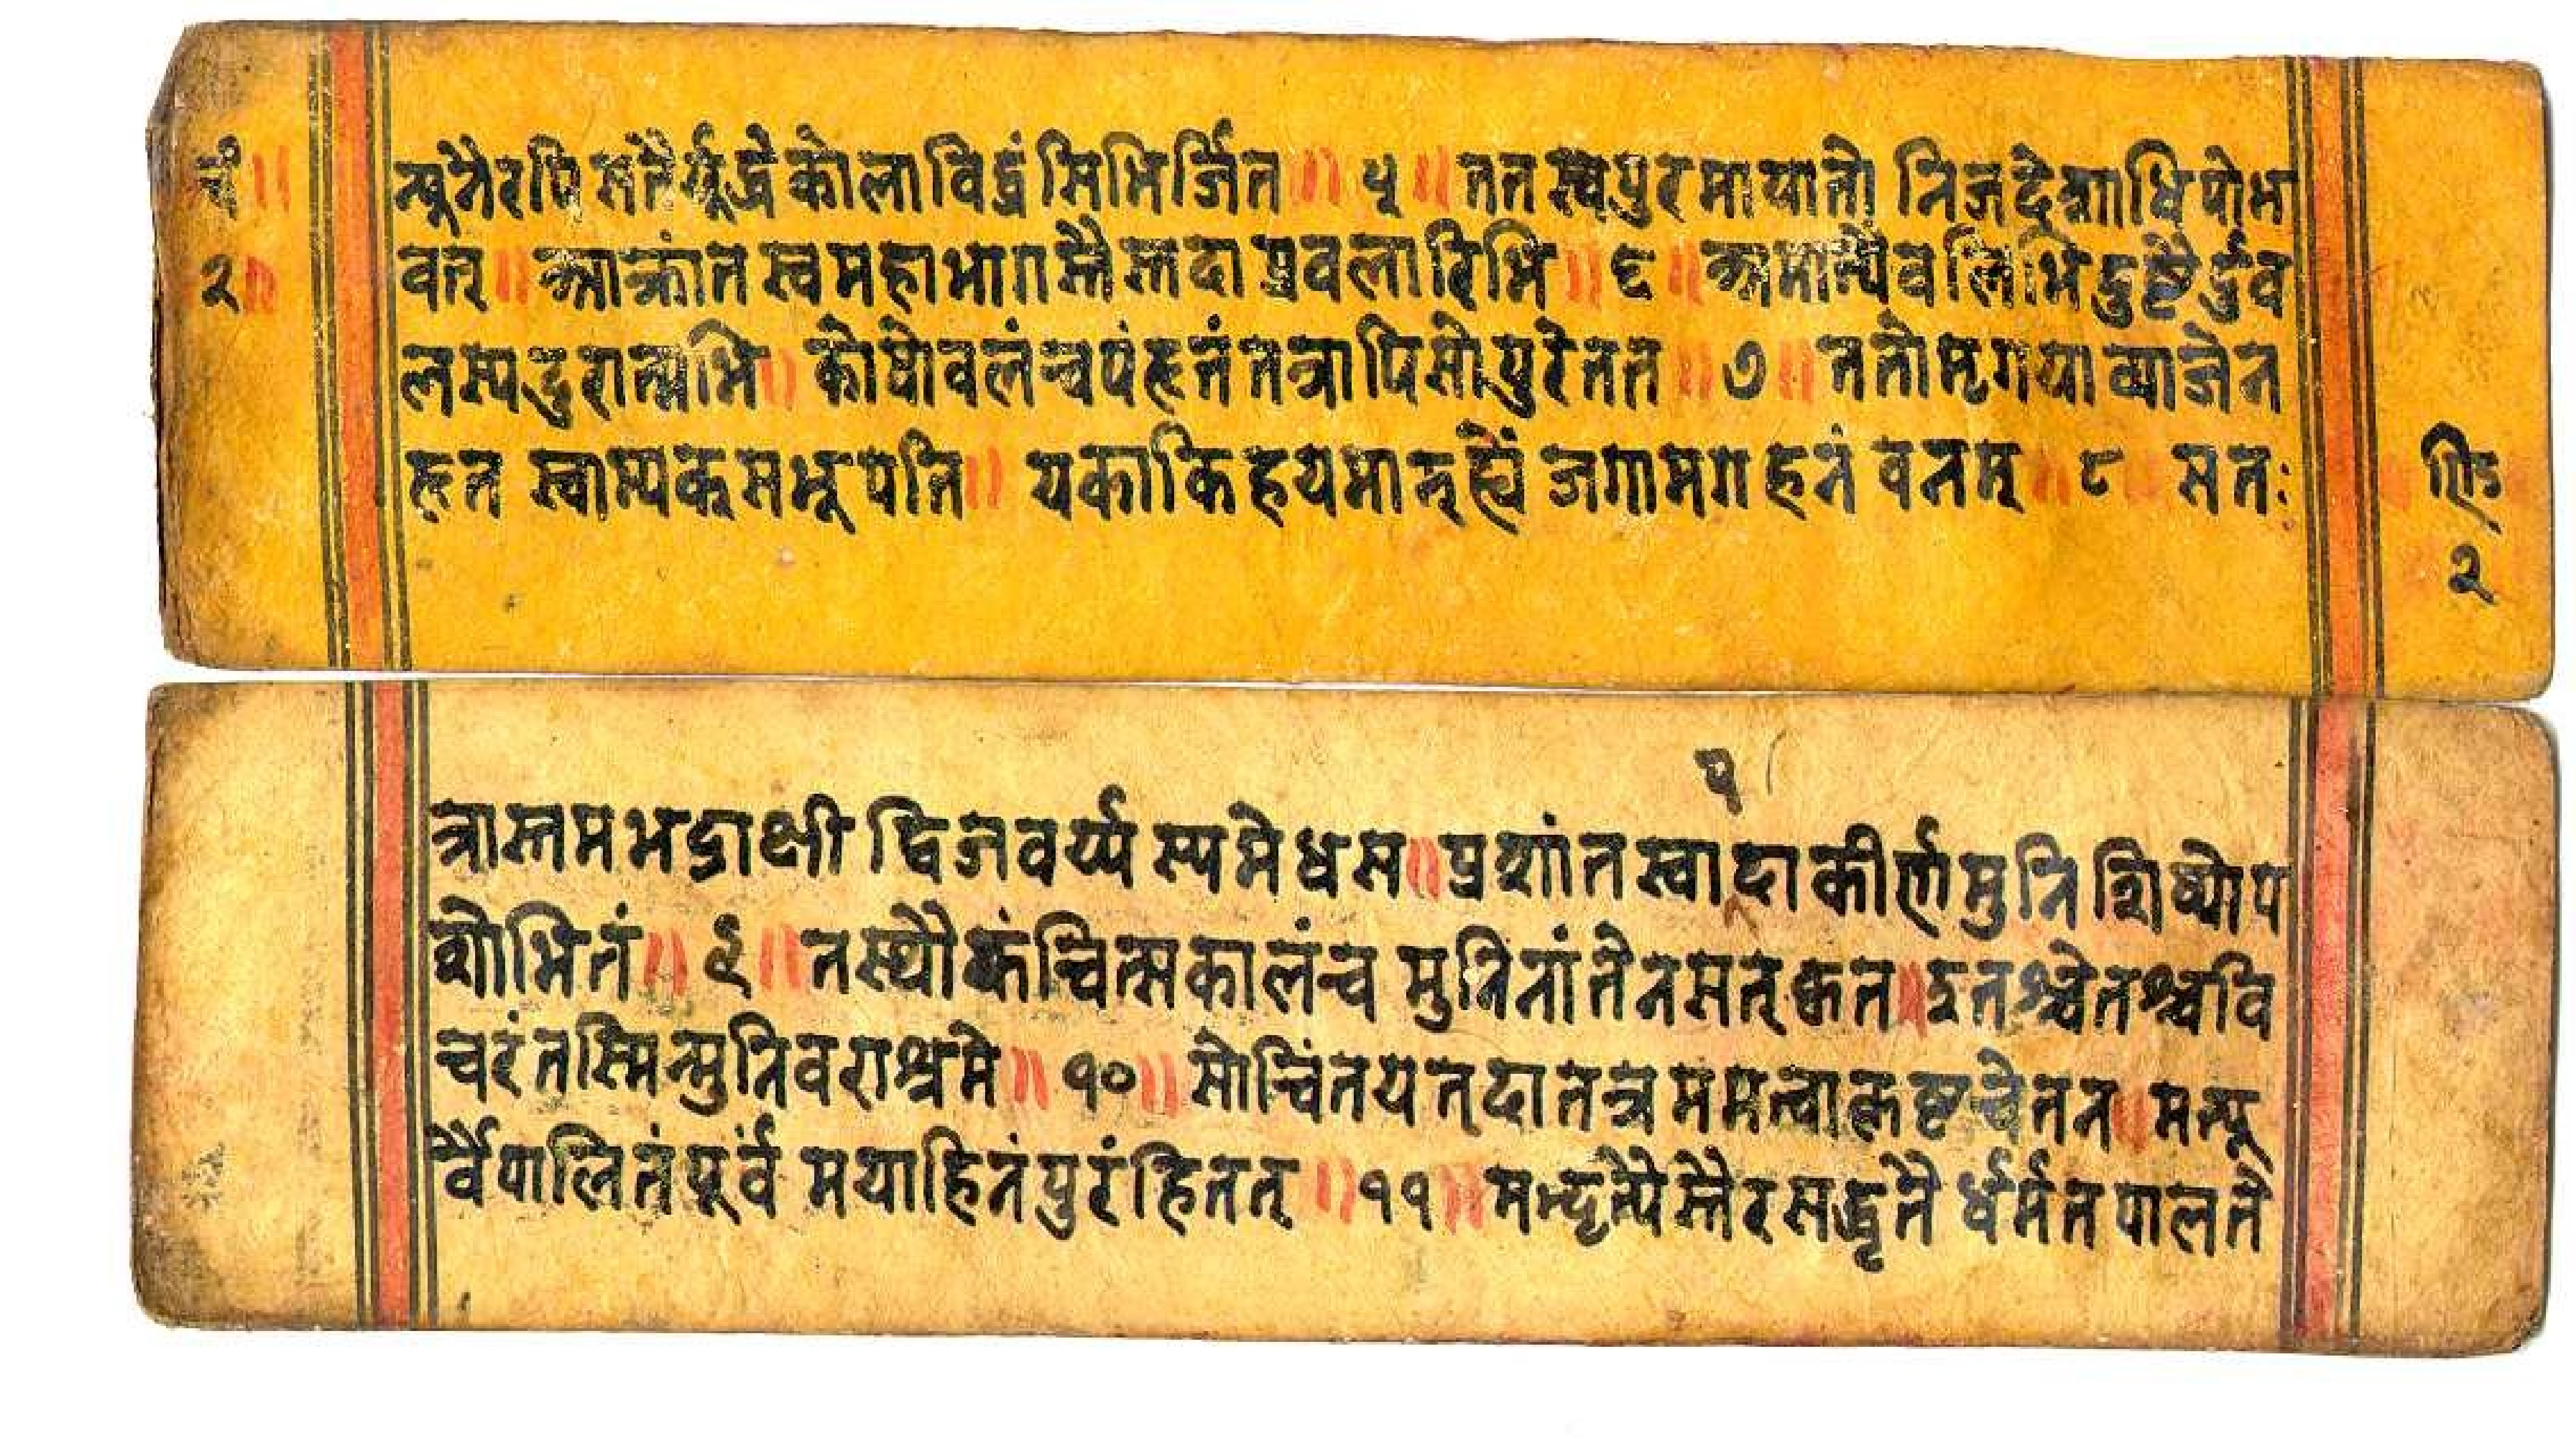 चं॥
२॥
न्यूनैरपि सतैर्यूद्धे कोलाविद्वंसिभिर्जित॥ ५॥ तत स्वपुरमायातो निजदेशाधिपोभ
वत्॥ आक्रांत स्वमहाभागस्तैस्तदा प्रवलारिभि॥ ६॥ अमात्यैवलिभिदुष्टैर्दुव
लस्यदुरात्मभि॥ कोषोवलंच्चपंहृतंतत्रापिसोपुरेतत॥ ७॥ ततोमृगयाव्याजेन
हृत स्वाम्यकसभूपति॥ यकाकिहयमारुह्यैं जगामगहनं वनम् ॥ ८ सतः
शिड
२
प
त्रास्तमभद्राक्षी द्विजवर्य्य स्यमेधस॥ प्रशांतस्वादाकीर्णमुनिशिष्योप
शोभितं॥ ९॥ तस्थौकंच्चित्सकालंच्च मुनिनांतैनसत्कृत॥ इतश्चेतश्चवि
च्चरंतस्मिन्मुनिवराश्रमे॥ १०॥ सोच्चिंतयत्दातत्र ममत्वाकृष्टच्चेतन॥ मत्पू
र्वैपालितंपूर्वं मयाहिनंपुरंहितत्॥ ११॥ मद्भृत्यैस्तैरसद्वृतै र्धर्मतपालतै